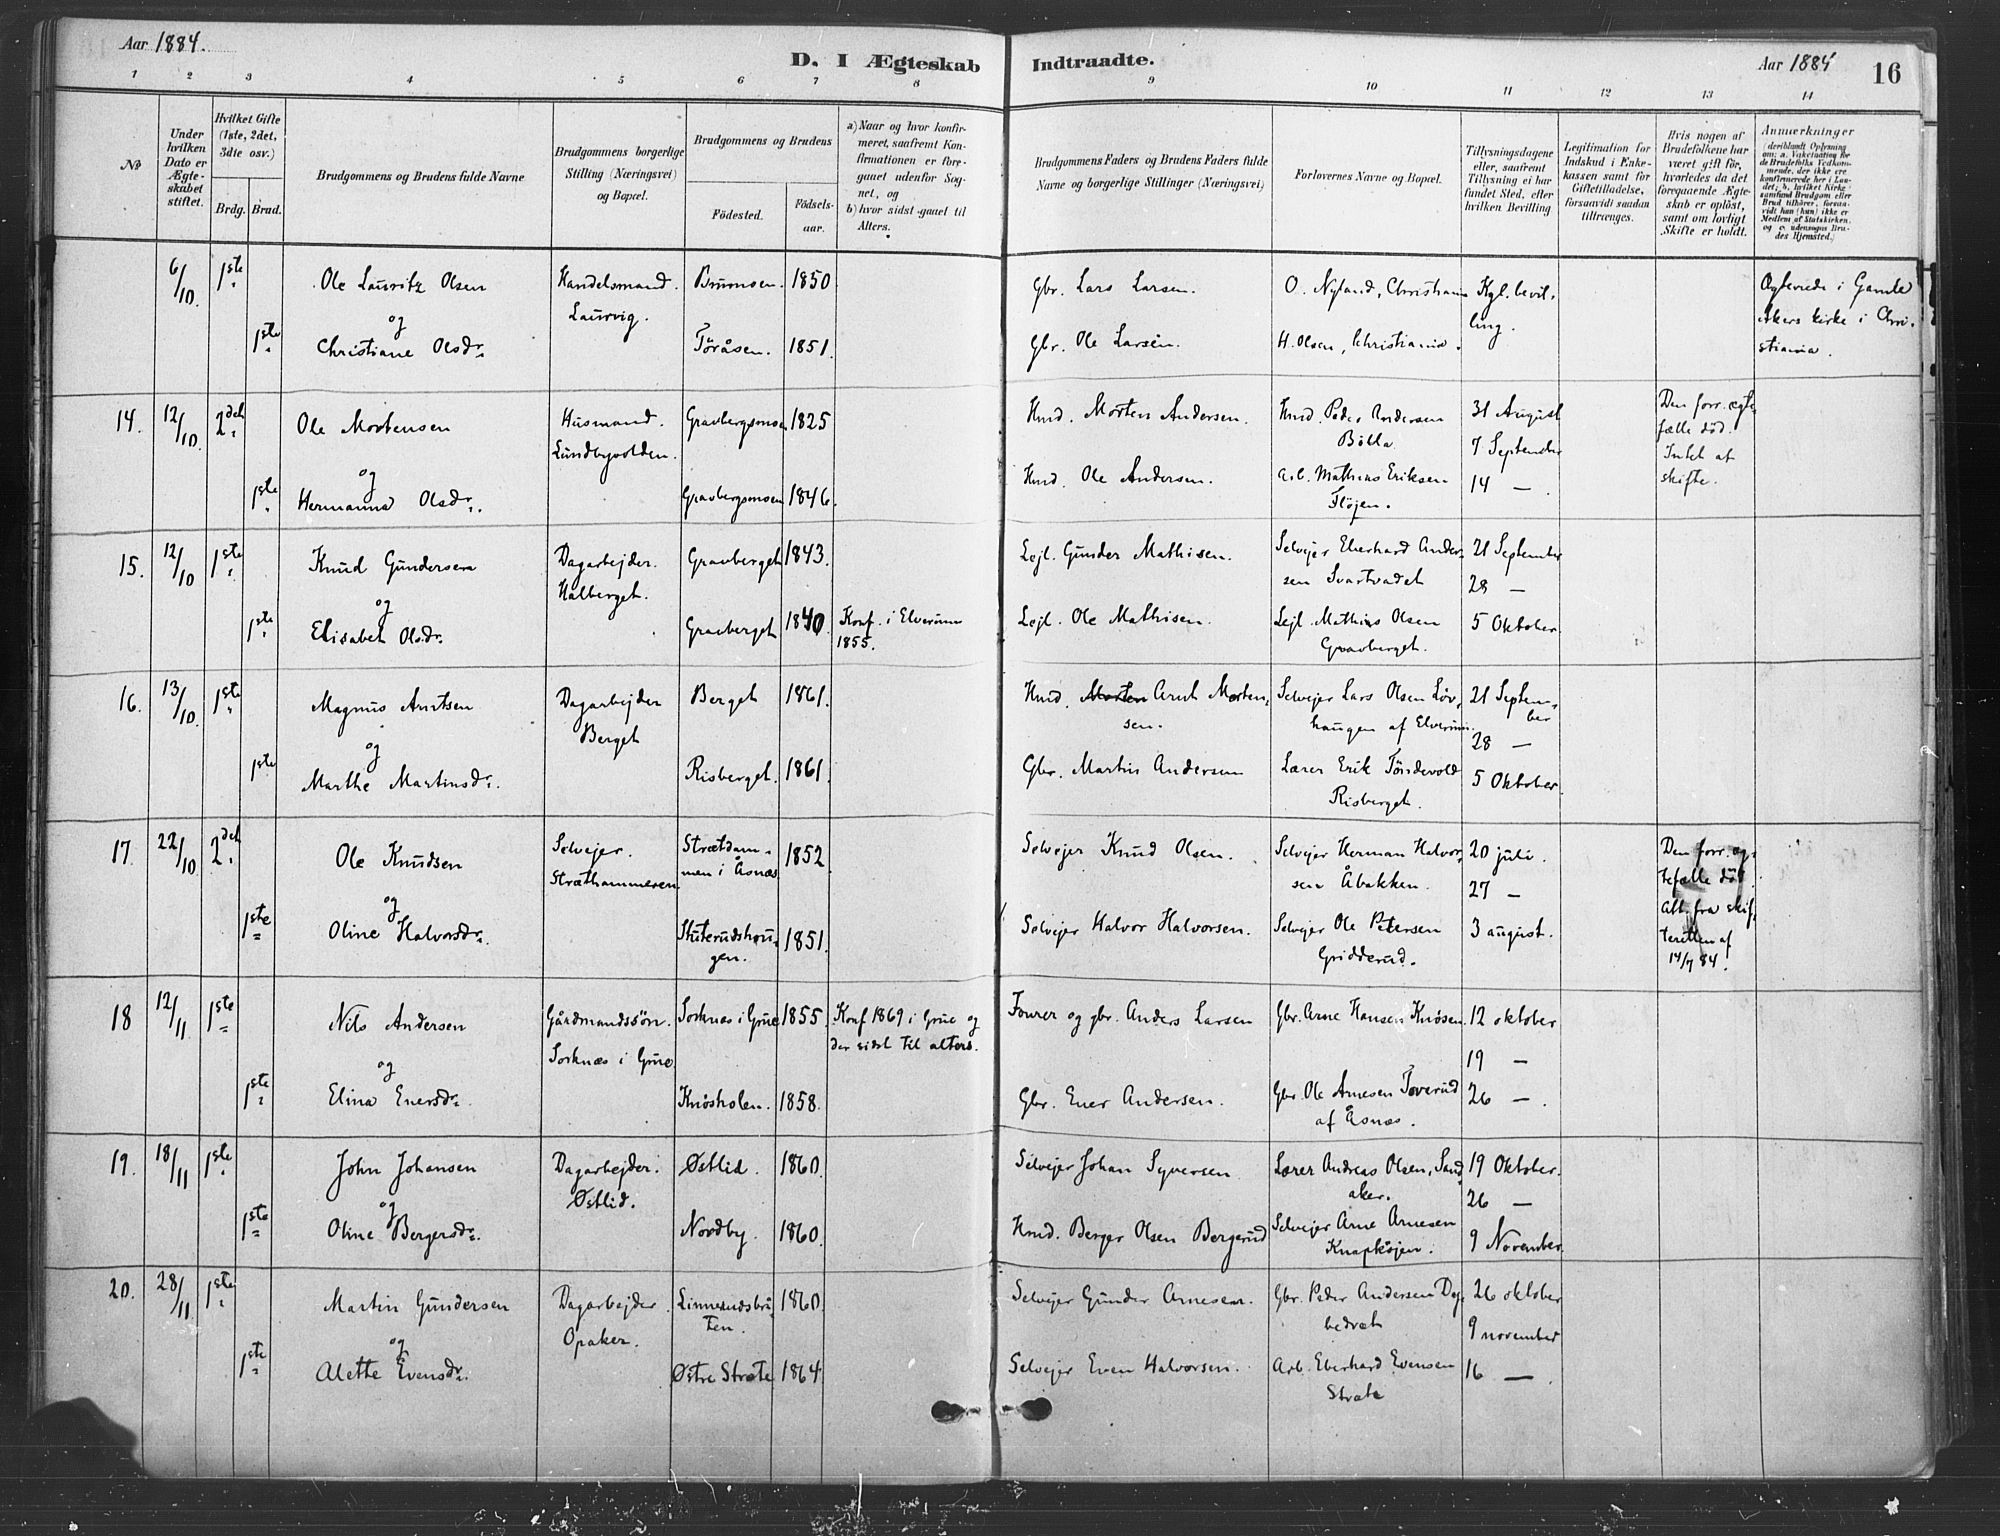 Aar 1884.
D. I Ægteskab Indtraadte.
Aar 1884
16
1 2 3 4 5 6 7 8 9 10 11 12 13 14
No
Under hvilken Dato er Ægteskabet stiftet.
Hvilket Gifte (1ste, 2det, 3die osv.)
Brdg. Brud.
Brudgommens og Brudens fulde Navne
Brudgommens borgerlige Stilling (Næringsvei) og Bopæl.
Brudgommens og Brudens
Fødested. Fødselsaar.
a) Naar og hvor konfirmeret, saafremt Konfirmationen er foregaaet udenfor Sognet, og
b) hvor sidst gaaet til Alters.
Brudgommens Faders og Brudens Faders fulde Navne og borgerlige Stillinger (Næringsvei)
Forlovernes Navne og Bopæl.
Tillysningsdagene eller, saafremt Tillysning ei har fundet Sted, efter hvilken Bevilling
Legitimation for Indskud i Enkekassen samt for Giftetilladelse, forsaavidt saadan tiltrænges.
Hvis nogen af Brudefolkene har været gift før, hvorledes da det foregaaende Ægteskab er opløst, samt om lovligt Skifte er holdt.
Anmerkninger (deriblandt Oplysning om: a. Vakcination for de Brudefolks Vedkommende, der ikke ere konfirmerede her i Landet; b. hvilket Kirkesamfund Brudgom eller Brud tilhører, forsaavidt han (hun) ikke er Medlem af Statskirken, og c. udensogns Brudes Hjemsted.)
6/10. 1ste Ole Lauritz Olsen Handelsmand. Brumoen. 1850 Gbr. Lars Larsen. O. Nyland, Christiania Kgl. bevil- Ægteviede i Gamle
og Laurvig. ling. Akers kirke i Chri-
1ste Christiane Olsdr. Töråsen. 1851. Gbr. Ole Larsen. H. Olsen, Christiania. stiania.
14. 12/10. 2det Ole Mortensen Husmand. Gravbergsmoen 1825 Hmd. Morten Andersen. Hmd. Peder Andersen 31 August Den forr. ægte-
Lundbyvolden. Bölla 7 September fælle död.
og Intet at
1ste Hermanna Olsdr. Gravbergsmoen 1846. Hmd. Ole Andersen. Arb. Mathias Eriksen 14 — . skifte.
Flöjen.
15. 12/10 1ste Knud Gundersen Dagarbejder. Gravberget 1843. Lejl. Gunder Mathisen. Selvejer Eberhard Ander- 21 September
og Halberget. sen Svartvadet 28 —
1ste Elisabet Olsdr. Gravberget 1840. Konf. i Elverum Lejl. Ole Mathisen. Lejl. Mathias Olsen 5 Oktober.
1855. Gravberget.
16. 13/10. 1ste Magnus Arntsen Dagarbejder Berget 1861. Hmd. Morten Arnt Morten- Selvejer Lars Olsen Löv- 21 Septem-
Berget sen. haugen af Elverum. ber
og 28 —
1ste Marthe Martinsdr. Risberget. 1861. Gbr. Martin Andersen Lærer Erik Töndevold 5 Oktober.
Risberget.
17. 22/10 2det Ole Knudsen Selvejer. Strætdam- 1852 Selvejer Knud Olsen. Selvejer Herman Halvor- 20 juli. Den forr. æg-
Stræthammeren. men i Åsnæs sen Åbakken. 27 — tefælle död.
og Att. fra skif-
1ste Oline Halvorsdr. Skuterudshou- 1851. Selvejer Halvor Halvorsen. Selvejer Ole Petersen 3 august. teretten af
gen. Gridderud. 14/7 84.
18 12/11 1ste Nils Andersen Gårdmandssön. Sorknæs i Grue 1855. Konf 1869 i Grue og Fourer og gbr. Anders Larsen Gbr. Arne Hansen Knösen. 12 oktober
og Sorknæs i Grue der sidst til alters. 19 —
1ste Elina Enersdr. Knösholen. 1858. Gbr. Ener Andersen. Gbr. Ole Arnesen Toverud 26 — .
af Åsnæs.
19. 18/11 1ste John Johansen Dagarbejder. Østlid. 1860. Selvejer Johan Syversen. Lærer Andreas Olsen, Sand- 19 Oktober.
og Østlid. aker. 26 —
1ste Oline Bergersdr. Nordby. 1860. Hmd. Berger Olsen Bergerud Selvejer Arne Arnesen 9 November.
Knapköjen.
20. 28/11 1ste Martin Gundersen Dagarbejder. Linnerudsbrå- 1860. Selvejer Gunder Arnesen. Gbr. Peder Andersen Dy- 26 oktober
og Opaker. ten. bedræt 9 november
1ste Alette Evensdr. Østre Stræte 1864. Selvejer Even Halvorsen. Arb. Eberhard Evensen 16 —
Stræte